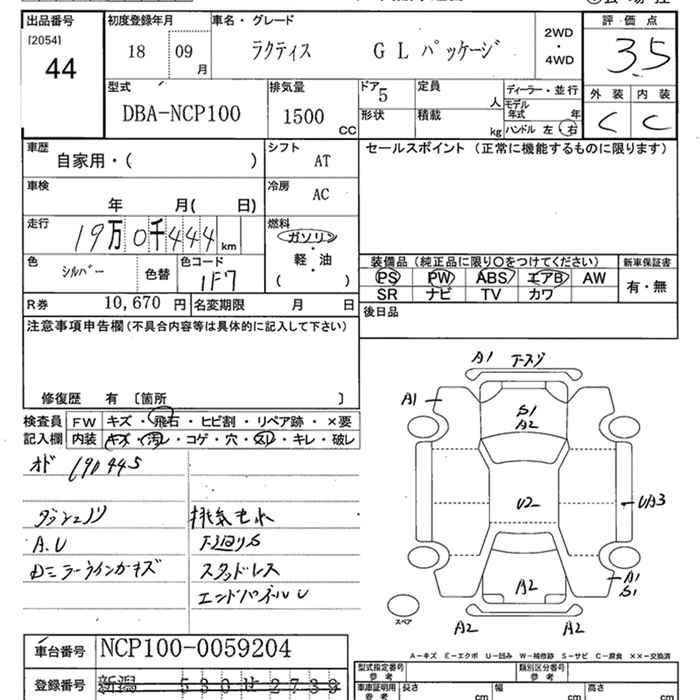 出品番号 初度登録年月 車名・グレード 2WD・4WD 評価点
[2054] 44
18 09月 ラクティス GLパッケージ 3.5
型式 排気量 ドア 5 定員 人 ディーラー・並行 外装 内装
DBA-NCP100 1500 CC 形状 積載 kg モデル年式 年 C C
ハンドル 左 右
車歴 シフト セールスポイント(正常に機能するものに限ります)
自家用・( ) AT
車検 冷房
年 月( 日) AC
走行 燃料
19万0千444km ガソリン
軽・油
( )
色 シルバー 色替 色コード 1F7
装備品(純正品に限り○をつけてください) 新車保証書
PS PW ABS エアB AW 有・無
SR ナビ TV カワ
R券 10,670円 名変期限 月 日
後日品
注意事項申告欄(不具合内容等は具体的に記入して下さい)
修復歴 有 [箇所 ]
検査員 FW キズ・飛石・ヒビ割・リペア跡・×要
記入欄 内装 キズ・汚レ・コゲ・穴・スレ・キレ・破レ
オド 190445
排気モレ
A.U 下廻りS
スタッドレス
エンドパネルU
A1
A1
S1
A2
U2
UA3
A2
A1
S1
A2 A2
スペア
A-キズ E-エクボ U-凹み W-補修跡 S-サビ C-腐食 ××-交換済
車台番号 NCP100-0059204
登録番号 新潟
型式指定番号 参考 類別区分番号 参考
車庫証明用 参考 長さ cm 幅 cm 高さ cm